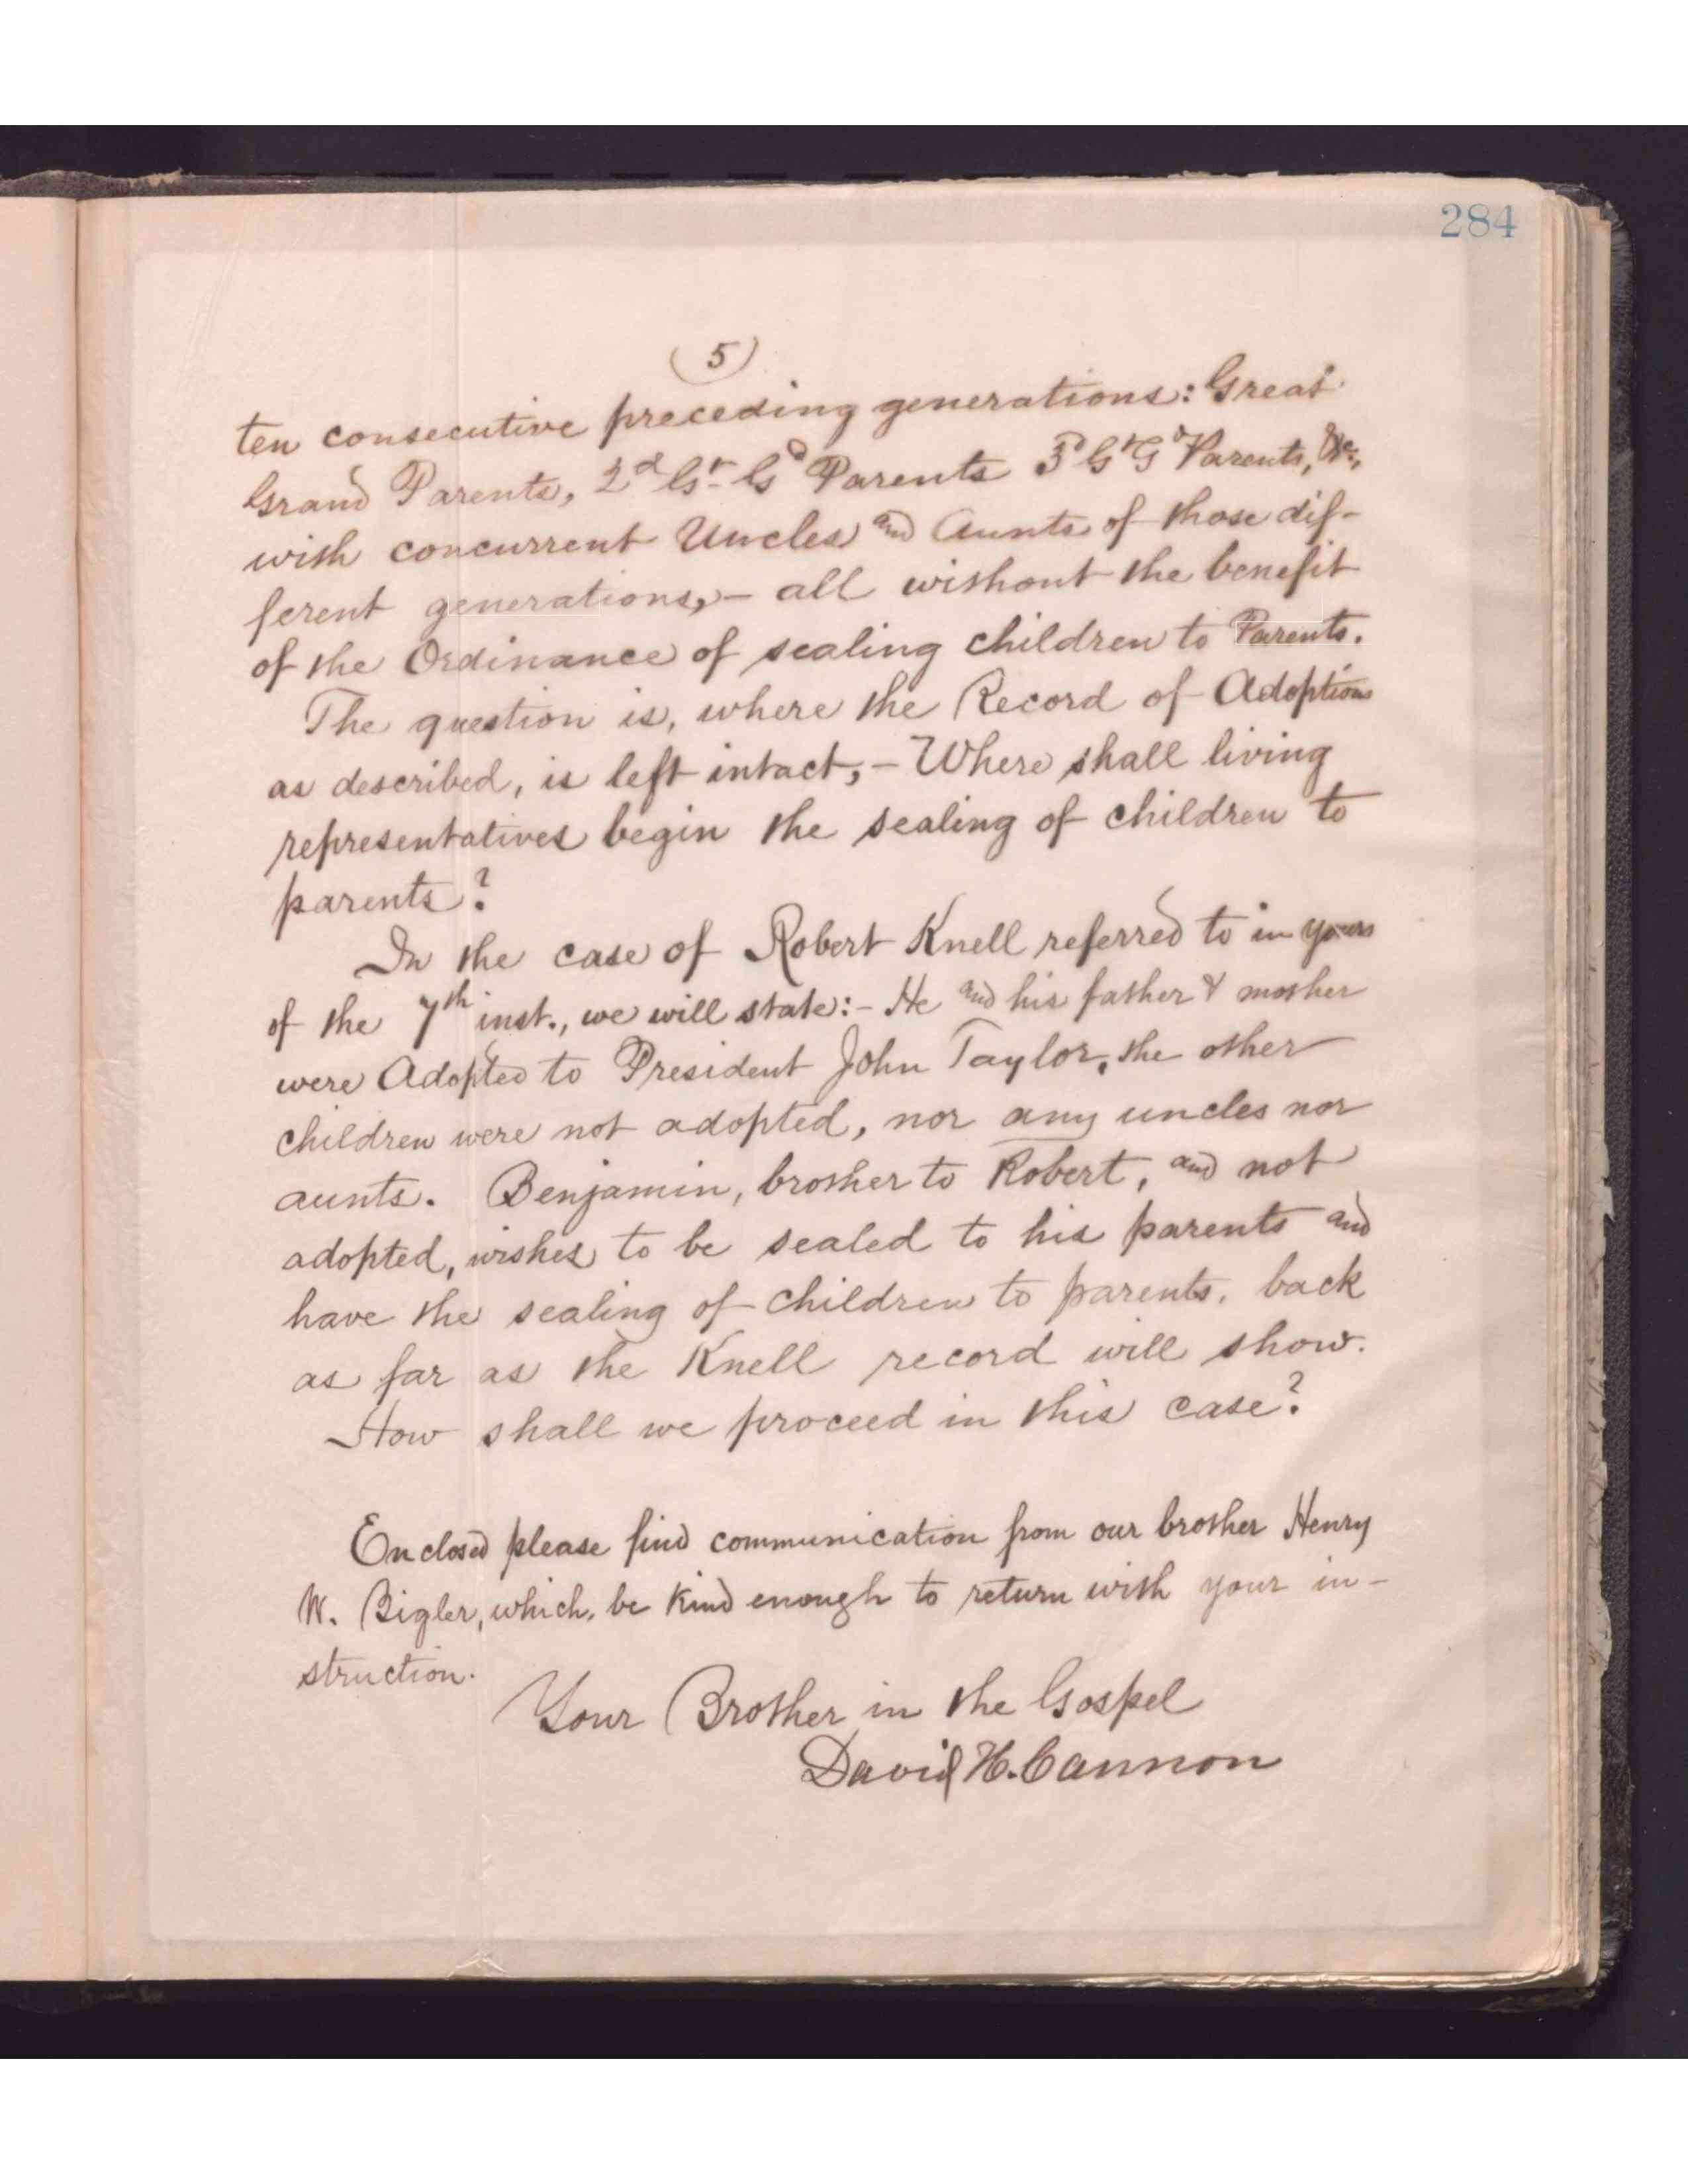 284
(5)
ten consecutive preceding generations: Great
Grand Parents, 2d Gr- Gd Parents 3d Gr Gd Parents, &c.,
with concurrent Uncles and Aunts of those dif-
ferent generations,- all without the benefit
of the Ordinance of sealing children to Parents.
The question is, where the Record of Adoptions
as described, is left intact,- Where shall living
representatives begin the sealing of children to
parents?
In the case of Robert Knell referred to in yours
of the 7th inst., we will state:- He and his father & mother
were Adopted to President John Taylor, the other
children were not adopted, nor any uncles nor
aunts. Benjamin, brother to Robert, and not
adopted, wishes to be sealed to his parents and
have the sealing of children to parents, back
as far as the Knell record will show.
How shall we proceed in this case?
Enclosed please find communication from our brother Henry
W. Bigler, which, be kind enough to return with your in-
struction.
Your Brother in the Gospel
David H. Cannon